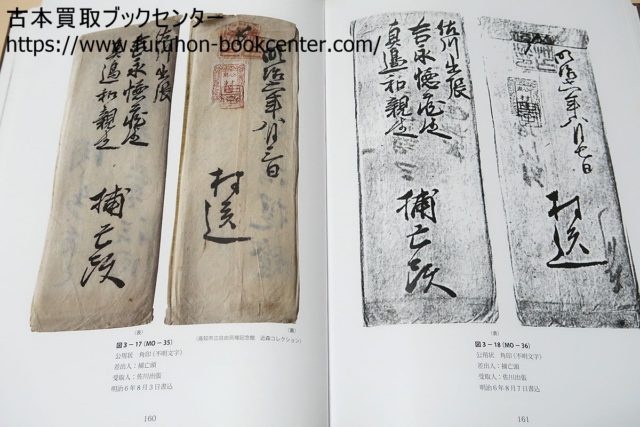 古本買取ブックセンター
https://www.furuhon-bookcenter.com/
佐川出張
吉永
真邉和親
捕亡頭
明治六年八月三日
村送
(表)
(裏)
図3-17(MO-35)
(高知市立自由民権記念館 近森コレクション)
公用状 角印(不明文字)
差出人:捕亡頭
受取人:佐川出張
明治6年8月3日書込
160
佐川出張
吉永
真邉和親
捕亡頭
明治六年八月七日
村送
(表)
(裏)
図3-18(MO-36)
公用状 角印(不明文字)
差出人:捕亡頭
受取人:佐川出張
明治6年8月7日書込
161